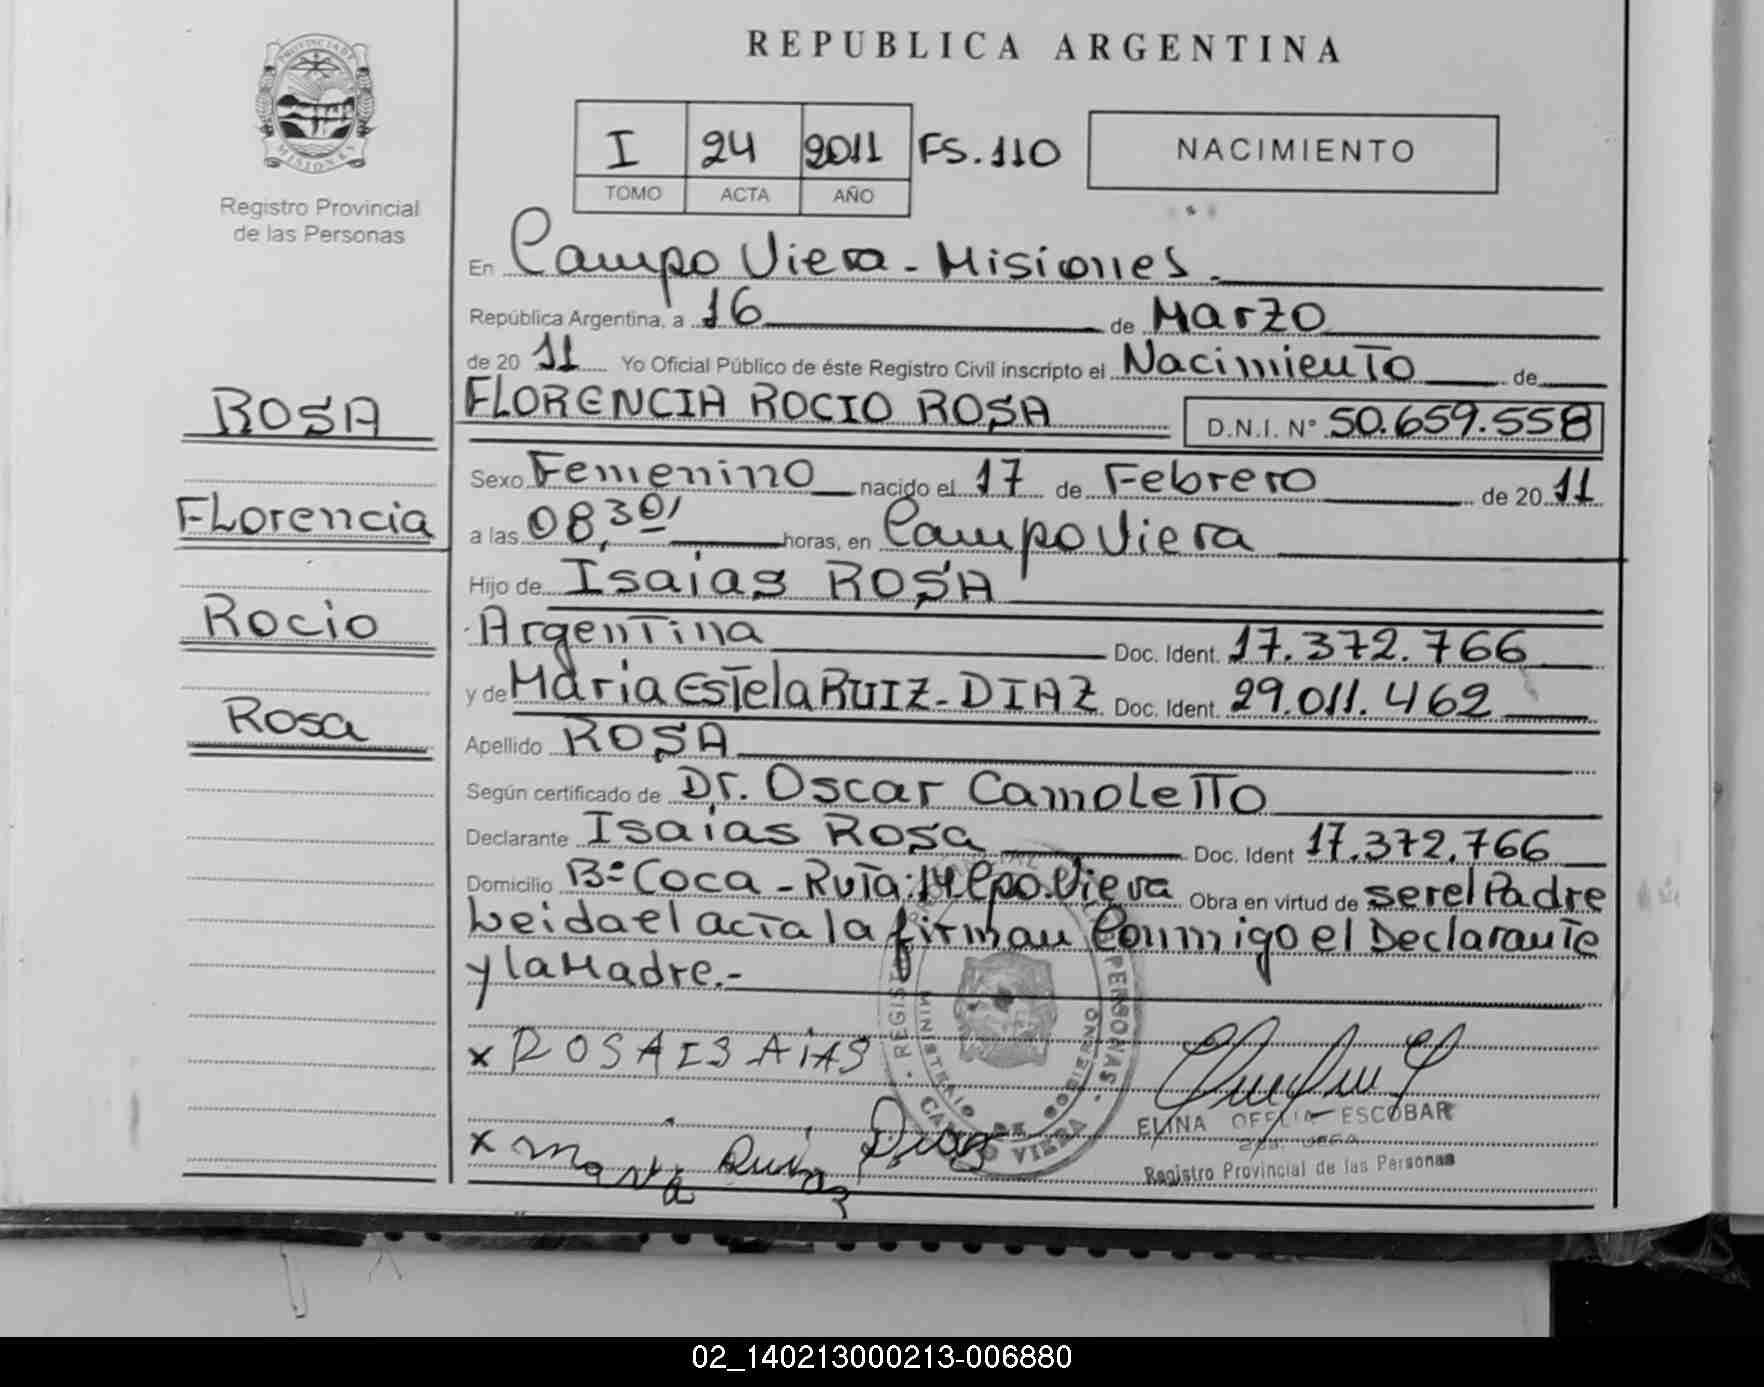 REPUBLICA ARGENTINA
PROVINCIA DE
MISIONES
Registro Provincial
de las Personas
I 24 2011 FS.110
TOMO ACTA AÑO
NACIMIENTO
En Campo Viera - Misiones.
República Argentina, a 16 de Marzo
de 20 11 Yo Oficial Público de éste Registro Civil inscripto el Nacimiento de
ROSA
FLORENCIA ROCIO ROSA D.N.I. N° 50.659.558
Sexo Femenino nacido el 17 de Febrero de 20 11
Florencia
a las 08,30' horas, en Campo Viera
Hijo de Isaías ROSA
Rocio
Argentina Doc. Ident. 17.372.766
y de María Estela RUIZ-DIAZ Doc. Ident. 29.011.462
Rosa
Apellido ROSA
Según certificado de Dr. Oscar Camoletto
Declarante Isaías Rosa Doc. Ident 17.372.766
Domicilio B° Coca - Ruta:14 Cpo.Viera Obra en virtud de ser el Padre
Leida el acta la firman Conmigo el Declarante
y la Madre.-
x ROSA ISAiAS
x maria Ruiz Diaz
MINISTERIO DE GOBIERNO
CAMPO VIERA
PERSONAS
ELINA OFELIA ESCOBAR
Registro Provincial de las Personas
02_140213000213-006880